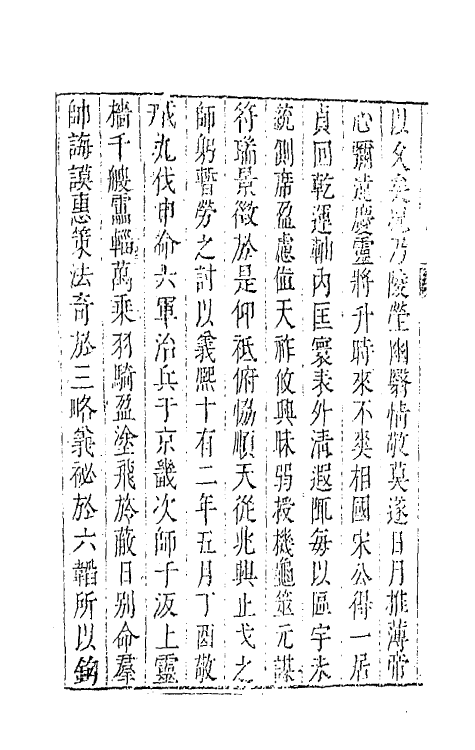 以久矣況乃陵塋幽翳情敬莫遂日月推薄帝
心彌遠慶靈將升時來不爽相國宋公得一居
貞回乾運軸內匡寰表外清遐陬每以區宇未
統側席盈慮值天祚攸興昧弱授機龜筮元謀
符瑞景徵於是仰祗俯恊順天從兆興止戈之
師躬暫勞之討以義熙十有二年五月丁酉敬
戒九伐申命六軍治兵于京畿次師于汳上靈
檣千艘雷輜萬乘羽騎盈塗飛於蔽日別命羣
帥誨謨惠策法奇於三略義祕於六韜所以鉤